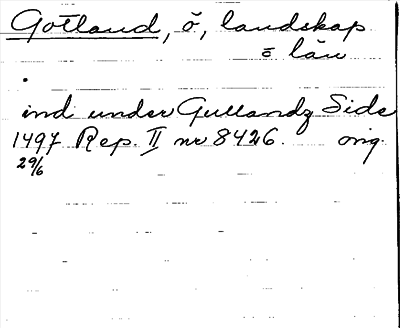 Gotland, ö, landskap
= län
.
ind under Gullandz Side
1497 Rep. II nr 8426. orig.
29/6